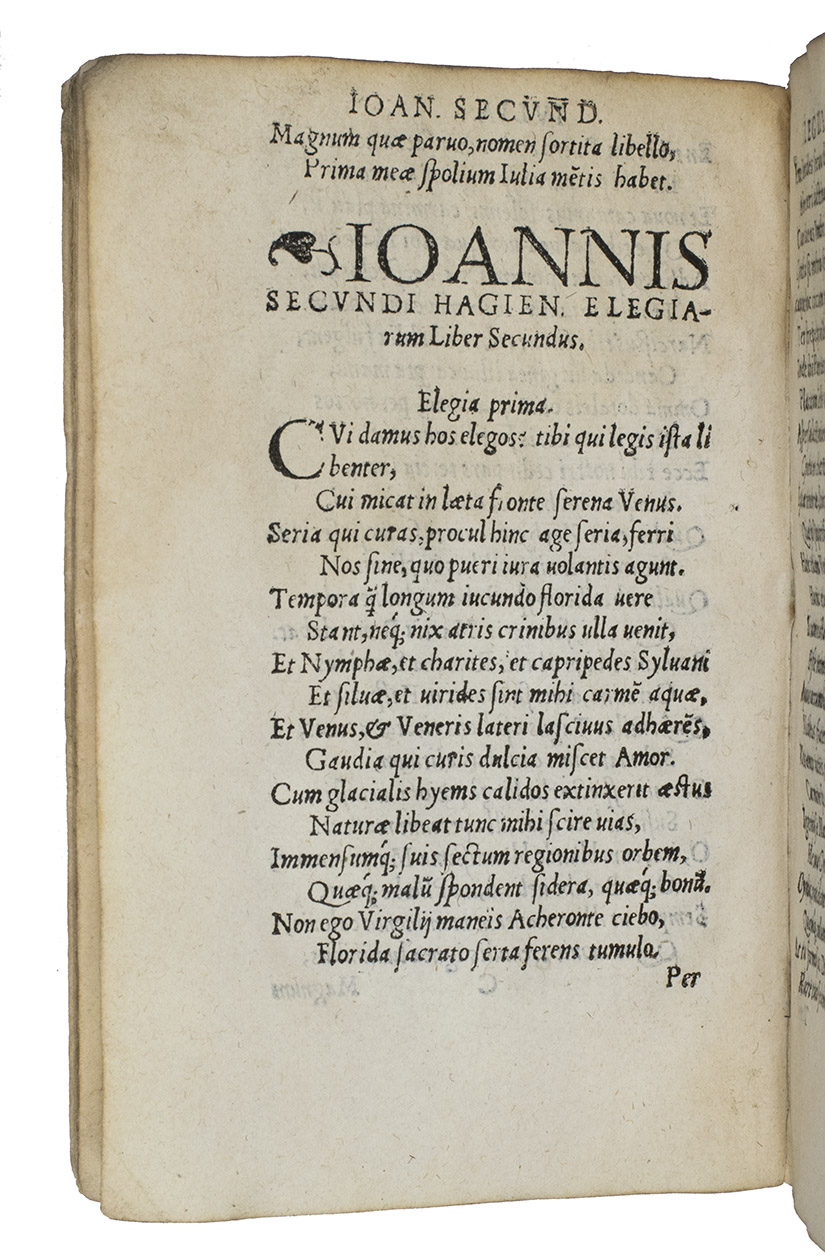 IOAN. SECVND.
Magnum quæ paruo, nomen ſortita libello,
Prima meæ ſpolium Iulia mẽtis habet.
❧IOANNIS
SECVNDI HAGIEN. ELEGIA-
rum Liber Secundus.
Elegia prima.
CVi damus hos elegos? tibi qui legis iſta li
benter,
Cui micat in læta fronte ſerena Venus.
Seria qui curas, procul hinc age ſeria, ferri
Nos ſine, quo pueri iura uolantis agunt.
Tempora q̃ longum iucundo florida uere
Stant, neq; nix atris crinibus ulla uenit,
Et Nymphæ, et charites, et capripedes Syluani
Et ſiluæ, et uirides ſint mihi carmẽ aquæ,
Et Venus, & Veneris lateri laſciuus adhærẽs,
Gaudia qui curis dulcia miſcet Amor.
Cum glacialis hyems calidos extinxerit æſtus
Naturæ libeat tunc mihi ſcire uias,
Immenſumq; ſuis ſectum regionibus orbem,
Quæq; malũ ſpondent ſidera, quæq; bonũ.
Non ego Virgilij maneis Acheronte ciebo,
Florida ſacrato ſerta ferens tumulo.
Per